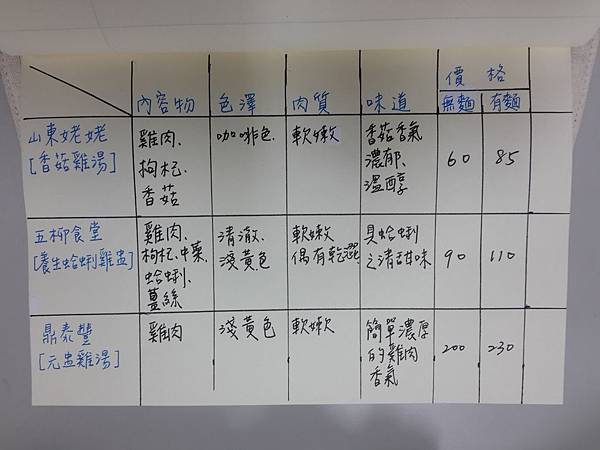 內容物 色澤 肉質 味道 價格
無麵 有麵
山東姥姥
[香菇雞湯]
雞肉、
枸杞、
香菇
咖啡色、
軟嫩
香菇香氣
濃郁、
溫醇
60
85
五柳食堂
[養生蛤蜊雞盅]
雞肉、
枸杞、中藥、
蛤蜊、
薑絲
清澈、
淺黃色
軟嫩
偶有乾澀
具蛤蜊
之清甜味
90
110
鼎泰豐
[元盅雞湯]
雞肉
淺黃色
軟嫩
簡單濃厚
的雞肉
香氣
200
230